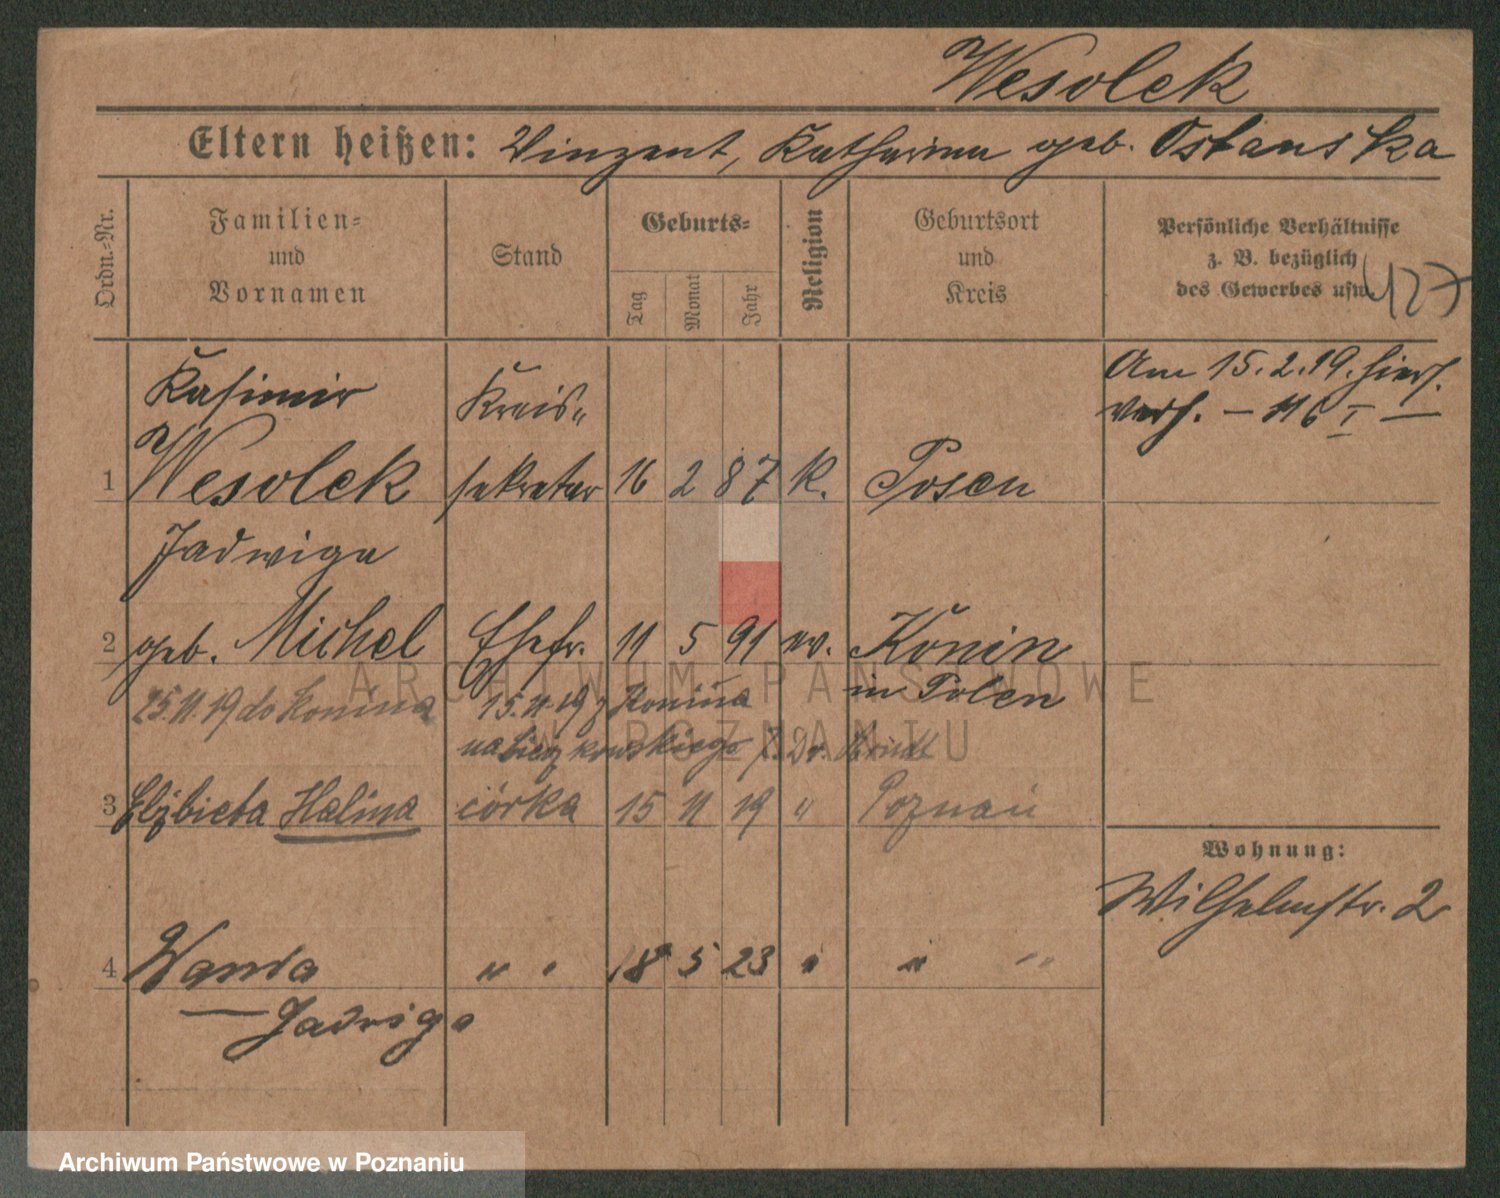 Wesolek
Eltern heißen: Vinzent, Katharina geb. Ostanska
Ordn.-Nr.
Familien-
und
Vornamen
Stand
Geburts-
Tag
Monat
Jahr
Religion
Geburtsort
und
Kreis
Persönliche Verhältnisse
z. B. bezüglich
des Gewerbes usw.
127
Kasimir
Kreis-
Am 15.2.19. hier
verh. — 116 I —
1 Wesolek sekretär 16 2 87 K. Posen
Jadwiga
2 geb. Michel Ehefr. 11 5 91 ev. Konin
in Polen
25.11.19 do Konina
15.11.19 z Konina
na 7. Dr.
3 Elżbieta Halina córka 15 11 19 " Poznań
Wohnung:
Wilhelmstr. 2
4 Wanda " " 18 5 23 " " "
— Jadwiga
ARCHIWUM PAŃSTWOWE
W POZNANIU
Archiwum Państwowe w Poznaniu